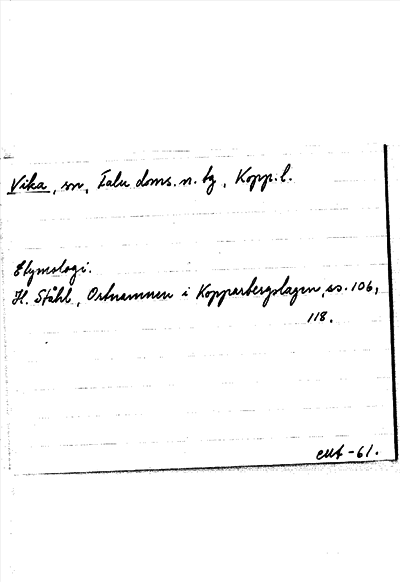 Vika, sn, Falu doms. n. tg, Kopp. l.
Etymologi.
H. Ståhl, Ortnamnen i Kopparbergslagen, ss. 106,
118.
-61.